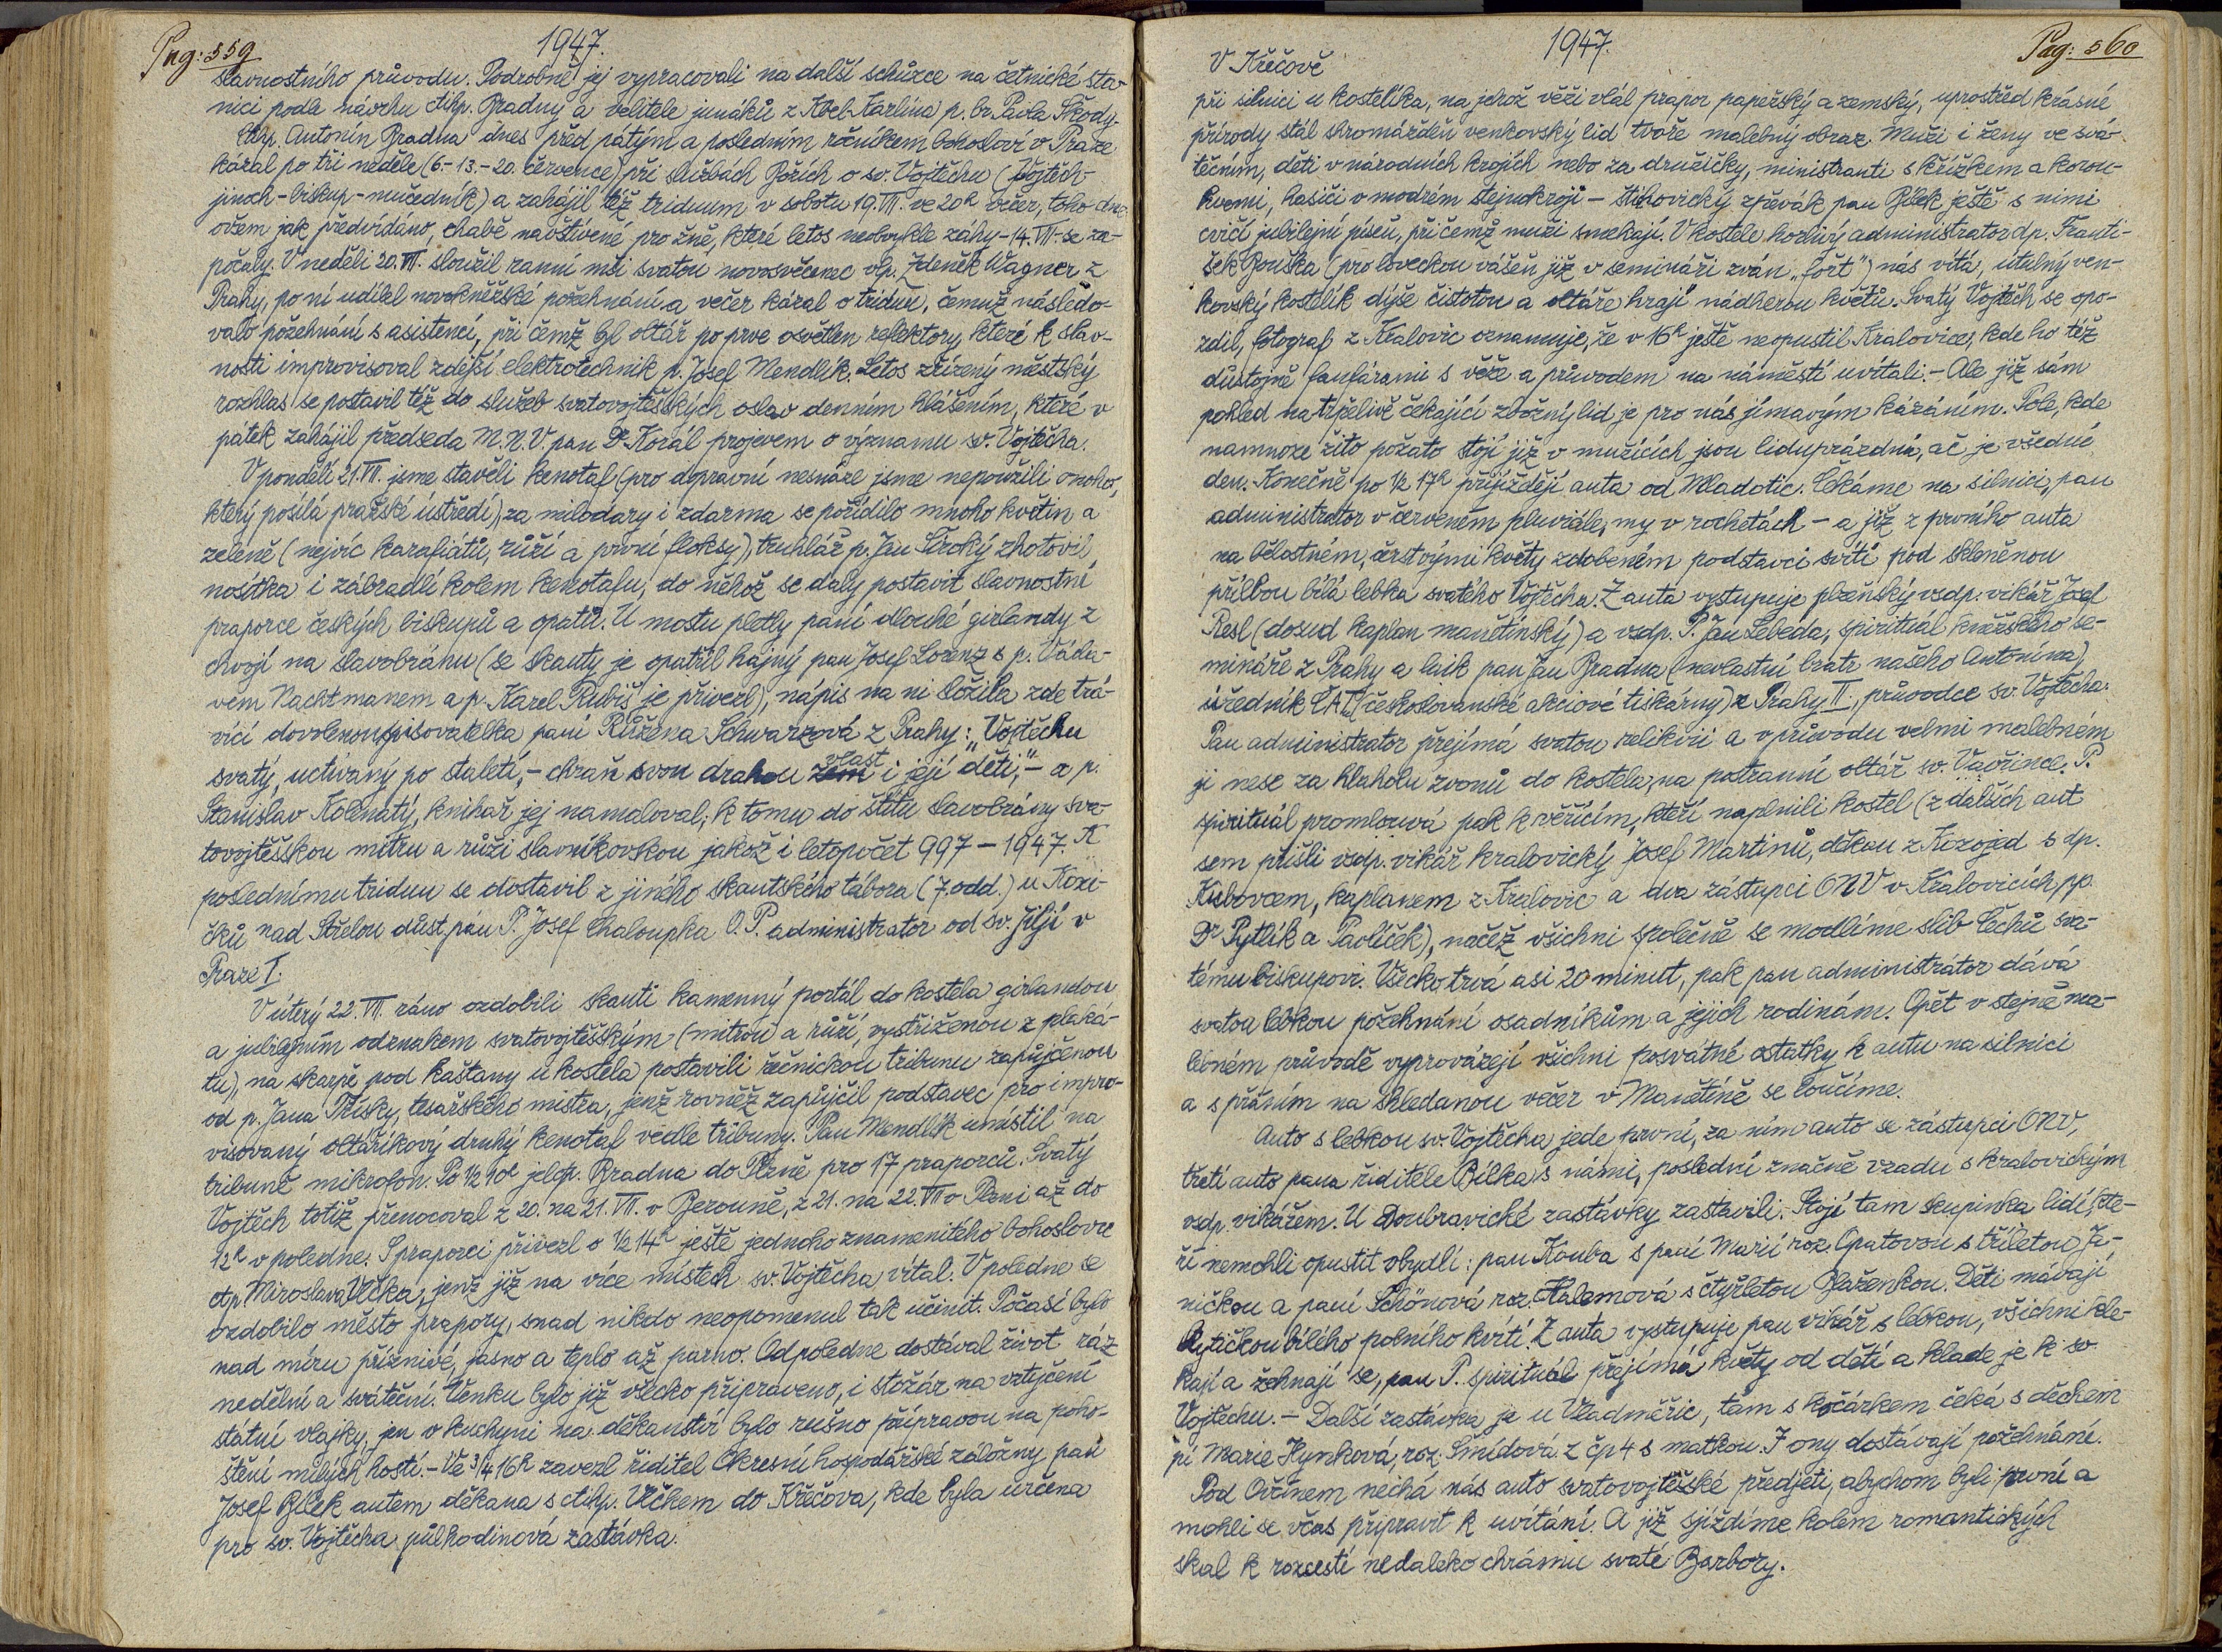 Pag: 559
1947.
slavnostního průvodu. Podrobně jej vypracovali na další schůzce na četnické sta-
nici podle návrhu ctihp. Bradny a velitele junáků z Kbel-Karlína p. br. Pavla Škody.
Ctihp. Antonín Bradna dnes před pátým a posledním ročníkem bohosloví v Praze
kázal po tři neděle (6.-13.-20. července) při službách Božích o sv. Vojtěchu (Vojtěch-
jinoch-biskup-mučedník) a zahájil též triduum v sobotu 19. VII. ve 20h večer, toho dne
ovšem jak předvídáno, chabě navštívené pro žně, které letos neobvykle záhy-14. VII.-se za-
počaly. V neděli 20. VII. sloužil ranní mši svatou novosvěcenec vlp. Zdeněk Wagner z
Prahy, po ní udílel novokněžské požehnání a večer kázal o triduu, čemuž následo-
valo požehnání s asistencí, při čemž byl oltář po prve osvětlen reflektory, které k slav-
nosti improvisoval zdejší elektrotechnik p. Josef Mendlík. Letos zřízený městský
rozhlas se postavil též do služeb svatovojtěšských oslav denním hlášením, které v
pátek zahájil předseda M.N.V. pan Dr Korál projevem o významu sv. Vojtěcha.
V pondělí 21. VII. jsme stavěli kenotaf (pro dopravní nesnáze jsme nepoužili onoho,
který posílá pražské ústředí), za milodary i zdarma se pořídilo mnoho květin a
zeleně (nejvíc karafiátů, růží a první floksy), truhlář p. Jan Široký zhotovil
nosítka i zábradlí kolem kenotafu, do něhož se daly postavit slavnostní
praporce českých biskupů a opatů. U mostu pletly paní dlouhé girlandy z
chvojí na slavobránu (se skauty je opatřil hajný pan Josef Lorenz s p. Václa-
vem Nachtmanem a p. Karel Rubiš je přivezl), nápis na ni složila zde trá-
vící dovolenou spisovatelka paní Růžena Schwarzová z Prahy: "Vojtěchu
svatý, uctívaný po staletí,- chraň svou drahou zem vlast i její děti,"- a p.
Stanislav Kolenatý, knihař jej namaloval; k tomu do štítu slavobrány sva-
tovojtěšskou mitru a růži slavníkovskou jakož i letopočet 997 - 1947. K
poslednímu triduu se dostavil z jiného skautského tábora (7. odd.) u Kozi-
čků nad Střelou důst. pán P. Josef Chaloupka O.P. administrator od sv. Jiljí v
Praze I.
V úterý 22. VII. ráno ozdobili skauti kamenný portál do kostela girlandou
a jubilejním odznakem svatovojtěšským (mitrou a růží, vystřiženou z plaká-
tu), na skarpě pod kaštany u kostela postavili řečnickou tribunu zapůjčenou
od p. Jana Třísky, tesařského mistra, jenž rovněž zapůjčil podstavec pro impro-
visovaný oltáříkový druhý kenotaf vedle tribuny. Pan Mendlík umístil na
tribuně mikrofon. Po ½ 10h jel ctp. Bradna do Plzně pro 17 praporců. Svatý
Vojtěch totiž přenocoval z 20. na 21. VII. v Berouně, z 21. na 22. VII v Plzni až do
12h v poledne. S praporci přivezl o ½ 14h ještě jednoho znamenitého bohoslovce
ctp. Miroslava Vlčka, jenž již na více místech sv. Vojtěcha vítal. V poledne se
ozdobilo město prapory, snad nikdo neopomenul tak učinit. Počasí bylo
nad míru příznivé, jasno a teplo až parno. Odpoledne dostával život ráz
nedělní a sváteční. Venku bylo již všecko připraveno, i stožár na vztyčení
státní vlajky, jen v kuchyni na děkanství bylo rušno přípravou na poho-
štění milých hostí. - Ve ¾ 16h zavezl ředitel Okresní hospodářské záložny pan
Josef Bílek autem děkana s ctihp. Vlčkem do Křečova, kde byla určena
pro sv. Vojtěcha půlhodinová zastávka.
1947.
Pag: 560
V Křečově
při silnici u kostelíka, na jehož věži vlál prapor papežský a zemský, uprostřed krásné
přírody stál shromážděn venkovský lid tvoře malebný obraz. Muži i ženy ve svá-
tečním, děti v národních krojích nebo za družičky, ministranti s křížkem a korou-
hvemi, hasiči v modrém stejnokroji - zpěvák pan Bílek ještě s nimi
cvičí jubilejní píseň, při čemž muži smekají. V kostele horlivý administrator dp. Franti-
šek Bouška (pro loveckou vášeň již v semináři zván "fořt") nás vítá, útulný ven-
kovský kostelík dýše čistotou a oltáře hrají nádherou květů. Svatý Vojtěch se opo-
zdil, fotograf z Kralovic oznamuje, že v 16h ještě neopustil Kralovice, kde ho též
důstojně fanfárami s věže a průvodem na náměstí uvítali. - Ale již sám
pohled na trpělivě čekající zbožný lid je pro nás jímavým kázáním. Pole, kde
namnoze žito požato stojí již v mužících jsou liduprázdná, ač je všední
den. Konečně po ½ 17h přijíždějí auta od Mladotic. Čekáme na silnici, pan
administrator v červeném pluviále, my v rochetách - a již z prvního auta
na vlastném, čerstvými květy zdobeném podstavci svítí pod skleněnou
přílbou bílá lebka svatého Vojtěcha. Z auta vystupuje plzeňský vsdp. vikář Josef
Resl (dosud kaplan manětínský) a vsdp. P. Jan Lebeda, spirituál kněžského se-
mináře z Prahy a laik pan Jan Bradna (nevlastní bratr našeho Antonína),
úředník ČAT (českoslovanské akciové tiskárny) z Prahy II., průvodce sv. Vojtěcha.
Pan administrator přejímá svatou relikvii a v průvodu velmi malebném
ji nese za hlaholu zvonů do kostela, na postranní oltář sv. Vavřince. P.
spirituál promlouvá pak k věřícím, kteří naplnili kostel (z dalších aut
sem přišli vsdp. vikář kralovický Josef Martinů, děkan z Kozojed s dp.
Kubovcem, kaplanem z Kralovic a dva zástupci ONV v Kralovicích, pp.
Dr Pytlík a Pavlíček), načež všichni společně se modlíme slib Čechů sva-
tému biskupovi. Všecko trvá asi 20 minut, pak pan administrátor dává
svatou lebkou požehnání osadníkům a jejich rodinám. Opět v stejně ma-
lebném průvodě vyprovázejí všichni posvátné ostatky k autu na silnici
a s přáním na shledanou večer v Manětíně se loučíme.
Auto s lebkou sv. Vojtěcha jede první, za ním auto se zástupci ONV,
třetí auto pana ředitele Bílka s námi, poslední značně vzadu s kralovickým
vsdp. vikářem. U Doubravické zastávky zastavili. Stojí tam skupinka lidí, kte-
ří nemohli opustit obydlí: pan Kouba s paní Marií roz. Opatovou s tříletou Ji-
řničkou a paní Schönová roz. Kalamová s čtyřletou Blaženkou. Děti mávají
kytičkou bílého polního kvítí. Z auta vystupuje pan vikář s lebkou, všichni kle-
kají a žehnají se, pan P. spirituál přejímá květy od dětí a klade je k sv.
Vojtěchu. - Další zastávka je u Vladměřic, tam s kočárkem čeká s děckem
pí Marie Hynková, roz. Šmídová z čp 4 s matkou. I ony dostávají požehnání.
Pod Ovčínem nechá nás auto svatovojtěšské předjeti, abychom byli první a
mohli se včas připravit k uvítání. A již sjíždíme kolem romantických
skal k rozcestí nedaleko chrámu svaté Barbory.